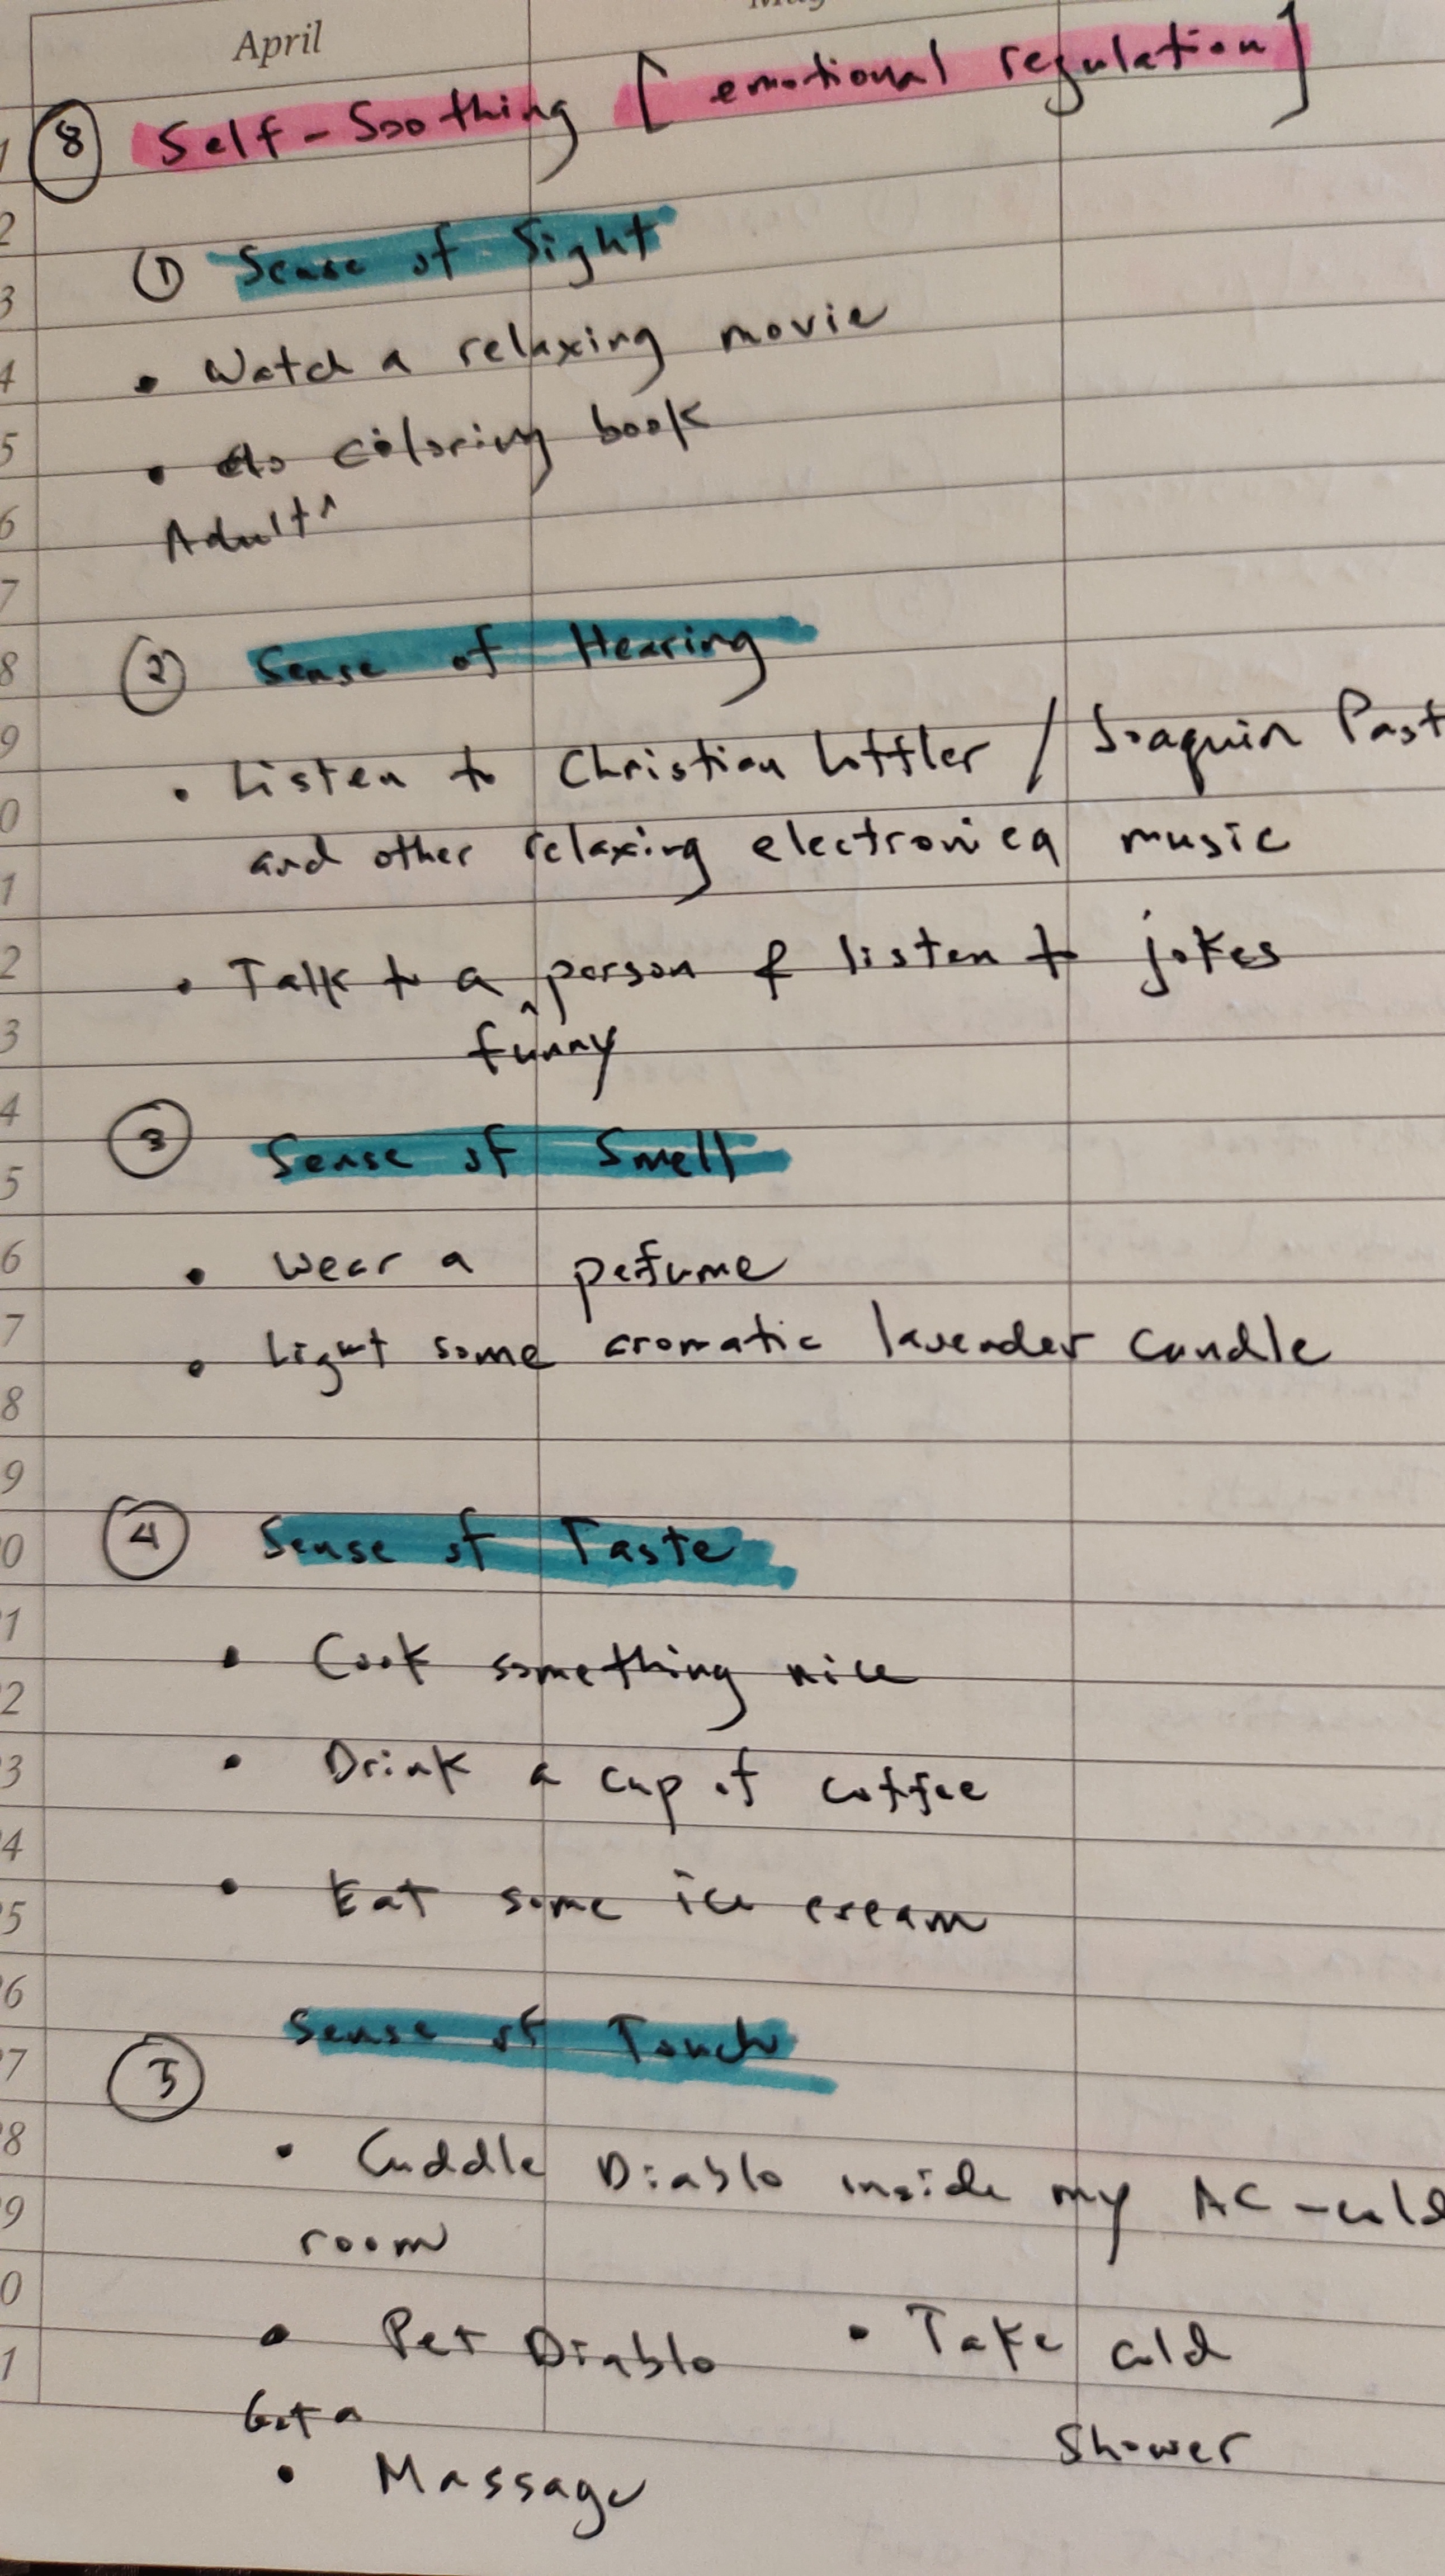 April May
8 Self-Soothing [emotional regulation]
1 Sense of Sight
• Watch a relaxing movie
• do coloring book
Adult ^
2 Sense of Hearing
• Listen to Christian Loffler / Joaquin Past
and other relaxing electronica music
• Talk to a ^ person & listen to jokes
funny
3 Sense of Smell
• Wear a pefume
• Light some aromatic lavender candle
4 Sense of Taste
• Cook something nice
• Drink a cup of coffee
• Eat some ice cream
5 Sense of Touch
• Cuddle Diablo inside my AC-cold
room
• Pet Diablo • Take cold
Shower
Get a
• Massage